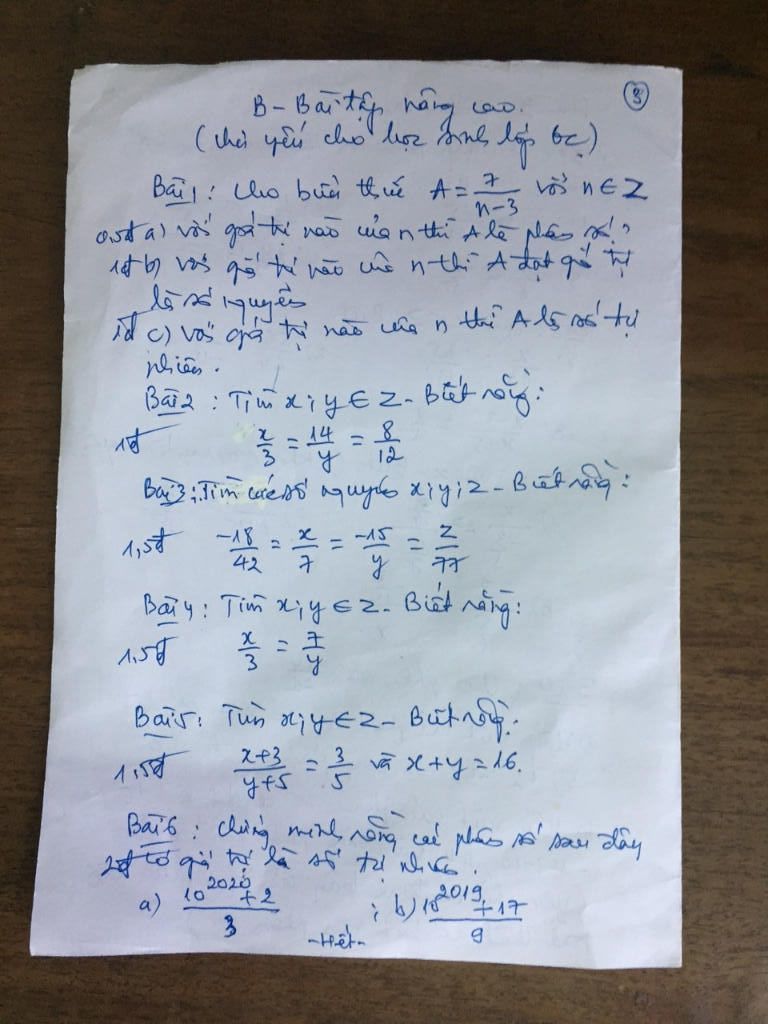 3
B - Bài tập nâng cao.
(chủ yếu cho học sinh lớp 6c)
Bài 1: Cho biểu thức A = 7/(n-3) với n ∈ Z
0,5đ a) với giá trị nào của n thì A là phân số?
1đ b) với giá trị nào của n thì A đạt giá trị
là số nguyên
1đ c) với giá trị nào của n thì A là số tự
nhiên.
Bài 2: Tìm x; y ∈ Z - Biết rằng:
1đ x/3 = 14/y = 8/12
Bài 3: Tìm các số nguyên x; y; z - Biết rằng:
1,5đ -18/42 = x/7 = -15/y = z/77
Bài 4: Tìm x; y ∈ Z - Biết rằng:
1,5đ x/3 = 7/y
Bài 5: Tìm x; y ∈ Z - Biết rằng:
1,5đ (x+3)/(y+5) = 3/5 và x + y = 16.
Bài 6: Chứng minh rằng các phân số sau đây
2đ có giá trị là số tự nhiên.
a) (10^2020 + 2)/3 ; b) (10^2019 + 17)/9
- Hết -